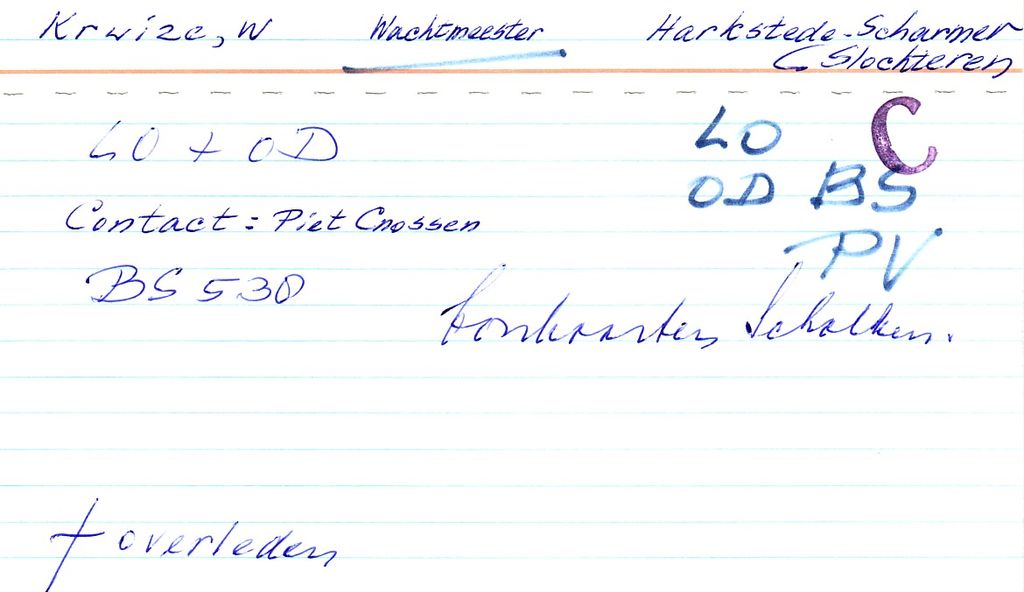 Krwize, W Wachtmeester Harkstede-Scharmer
(Slochteren
LO + OD LO C
OD BS
Contact: Piet Cnossen
PV
BS 530
Bonkaarten Schalken.
† overleden